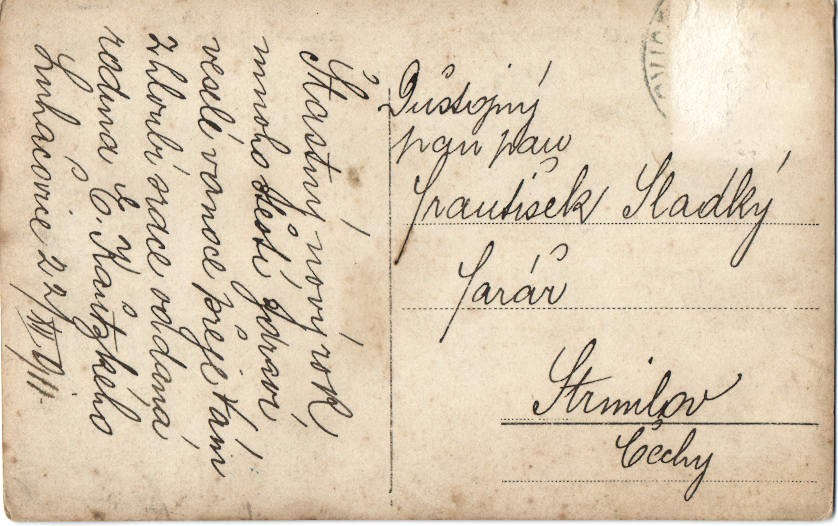 Štastný nový rok
mnoho štěstí zdraví,
veselé vanoce přeje Vám
z hloubi srdce oddaná
rodina E. Kautzkého
Luhacovice 22/XII 911.
Důstojný
pan pan
František Sladký
farář
Strmilov
Čechy
OVICE